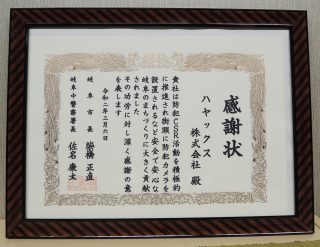 感謝状
ハヤックス
株式会社 殿
貴社は防犯CSR活動を積極的
に推進され街頭に防犯カメラを
設置されるなど安全で安心な
岐阜のまちづくりに大きく貢献
されました
その功労に対し深く感謝の意
を表します
令和二年三月六日
岐阜市長 柴橋 正直
岐阜中警察署長 佐名 康太